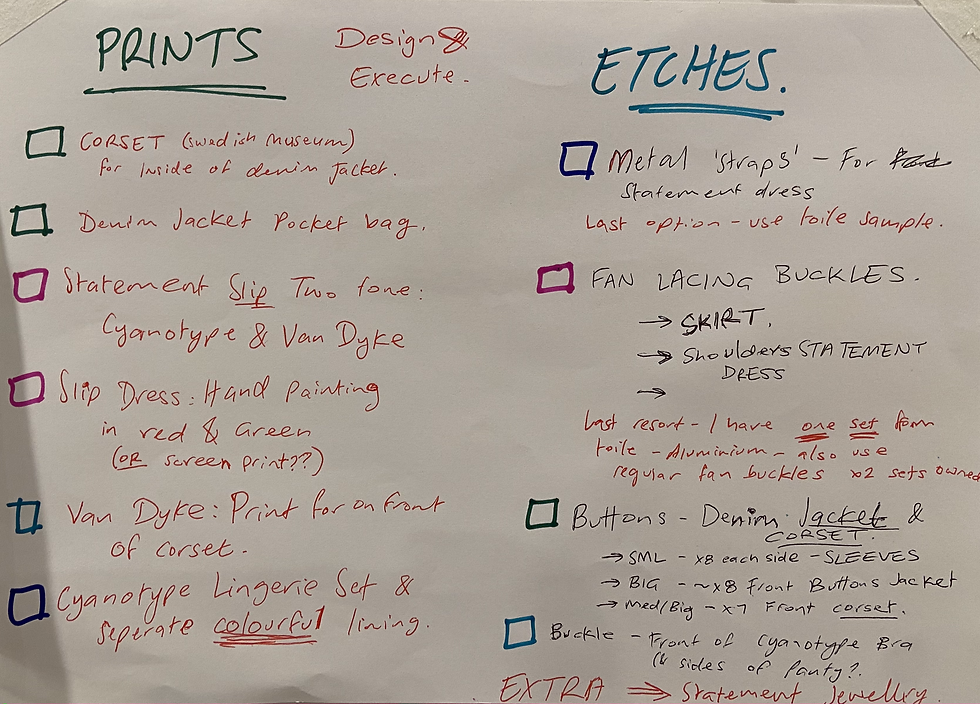 PRINTS
Design &
Execute.
CORSET (Swedish Museum)
for Inside of denim Jacket.
Denim Jacket Pocket bag.
Statement Slip Two tone:
Cyanotype & Van Dyke
Slip Dress: Hand Painting
in red & Green
(OR screen print??)
Van Dyke: Print for on front
of corset.
Cyanotype Lingerie Set &
seperate colourful lining.
ETCHES.
Metal 'straps' - For
Statement dress
Last option - use toile sample.
FAN LACING BUCKLES.
→ SKIRT.
→ Shoulders STATEMENT
DRESS
→
Last resort - I have one set from
toile - Aluminium - also use
regular fan buckles x2 sets owned
Buttons - Denim Jacket &
CORSET.
→ SML - x8 each side - SLEEVES
→ BIG - ~x8 Front Buttons Jacket
→ Med/Big - x7 Front corset.
Buckle - Front of Cyanotype Bra
(& sides of Panty?.
EXTRA ⇒ Statement Jewellry.